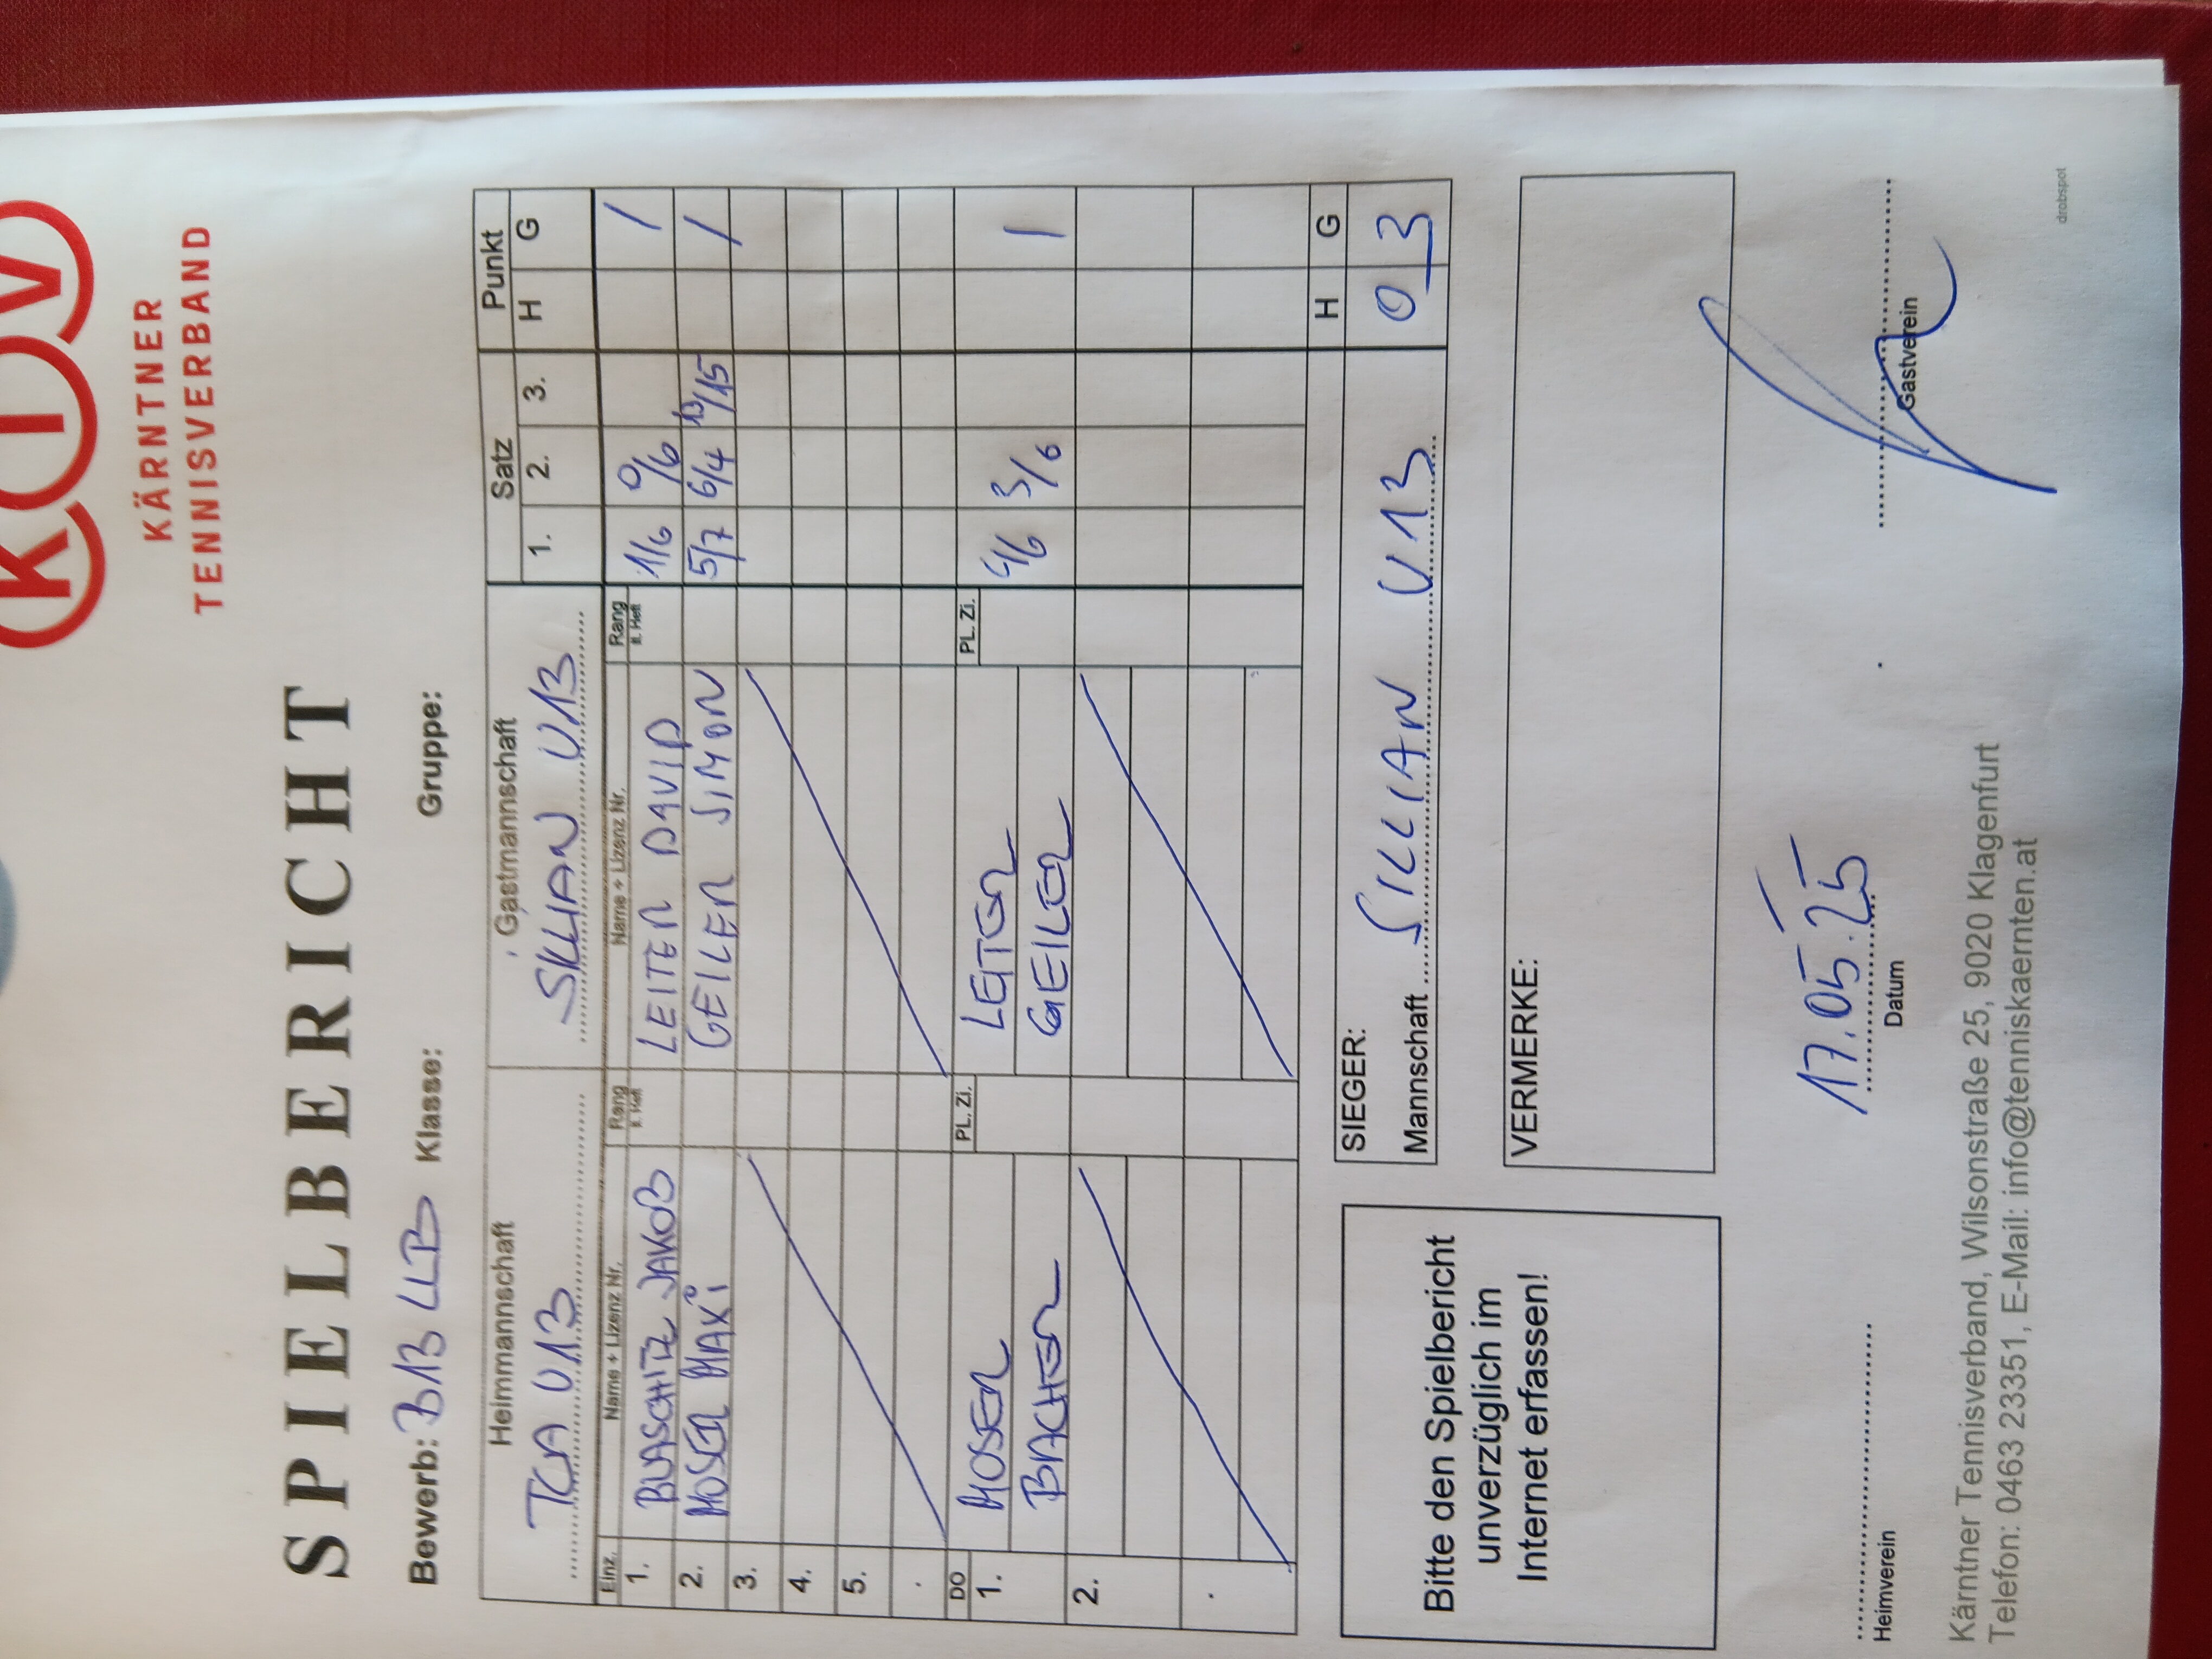 KTV
KÄRNTNER
TENNISVERBAND
SPIELBERICHT
Bewerb: B13 LLB Klasse: Gruppe:
Heimmannschaft Gastmannschaft Satz Punkt
TCA U13 SILLIAN U13 1. 2. 3. H G
Einz. Name + Lizenz Nr. Rang lt. Heft Name + Lizenz Nr. Rang lt. Heft
1. BUASCHITZ JAKOB LEITER DAVID 1/6 0/6 /
2. MOSER MAXI GEILER SIMON 5/7 6/4 13/15 /
3.
4.
5.
.
DO PL. Zi. PL. Zi.
1. MOSER LEITER 4/6 3/6 1
BACHER GEILER
2.
.
Bitte den Spielbericht
unverzüglich im
Internet erfassen!
SIEGER: H G
Mannschaft SILLIAN U13 0 3
VERMERKE:
17.05.25
Heimverein Datum Gastverein
Kärntner Tennisverband, Wilsonstraße 25, 9020 Klagenfurt
Telefon: 0463 23351, E-Mail: info@tenniskaernten.at
drobspot